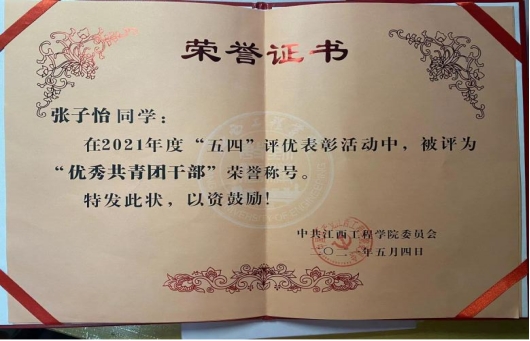 荣誉证书
张子怡同学：
在2021年度“五四”评优表彰活动中，被评为
“优秀共青团干部”荣誉称号。
特发此状，以资鼓励！
中共江西工程学院委员会
二〇二一年五月四日